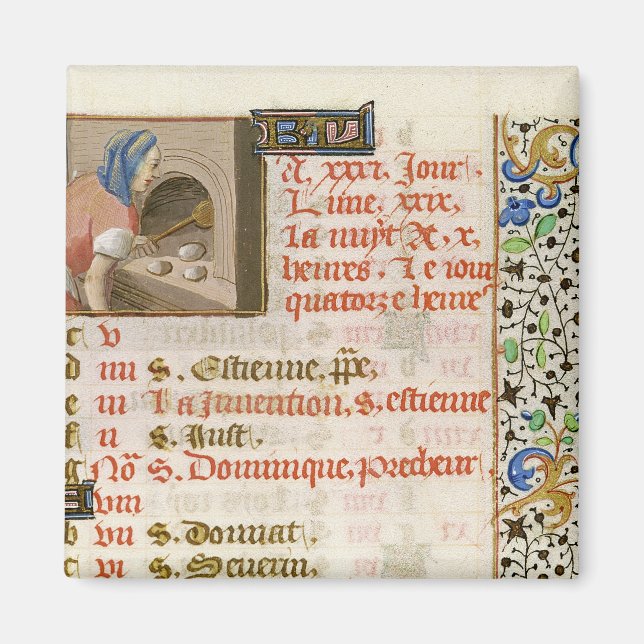 KL
A, xxxi, Jour
Lune, xxix,
La nuyt A, x,
heures, Le iour
quatorze heure
c v
d iiii S. Estienne, ppe,
e iii La Invention, S, estienne
f ii S. Just,
g No S. Dominique, precheur
viii
b vii S. Donnat,
c vi S. Severin,